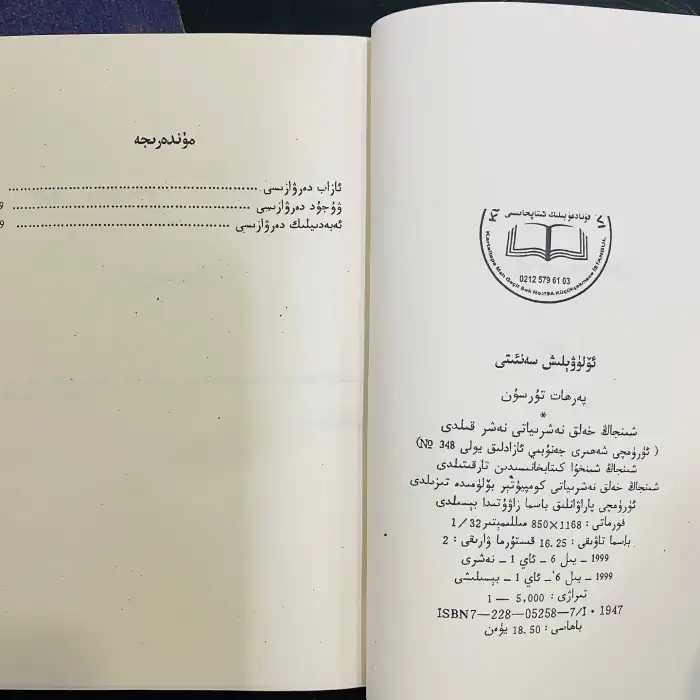 مۇندەرىجە
ئازاب دەرۋازىسى
ۋۇجۇد دەرۋازىسى
ئەبەدىيلىك دەرۋازىسى
قۇتادغۇبىلىك كىتابخانىسى
0212 579 61 03
Kartaltepe Mah Geçit Sok No:19A Küçükçekmece İSTANBUL
ئۆلۈۋېلىش سەنئىتى
پەرھات تۇرسۇن
*
شىنجاڭ خەلق نەشرىياتى نەشر قىلدى
( ئۈرۈمچى شەھىرى جەنۇبىي ئازادلىق يولى 348 №)
شىنجاڭ شىنخۇا كىتابخانىسىدىن تارقىتىلدى
شىنجاڭ خەلق نەشرىياتى كومپيۇتېر بۆلۈمىدە تىزىلدى
ئۈرۈمچى پاراۋانلىق باسما زاۋۇتىدا بېسىلدى
فورماتى : 850×1168 مىللىمېتىر 1/32
باسما تاۋىقى : 16.25 قىستۇرما ۋارىقى : 2
1999 – يىل 6 – ئاي 1 – نەشرى
1999 – يىل 6 – ئاي 1 – بېسىلىشى
تىراژى : 5,000 — 1
ISBN7—228—05258—7/I·1947
باھاسى : 18.50 يۈەن